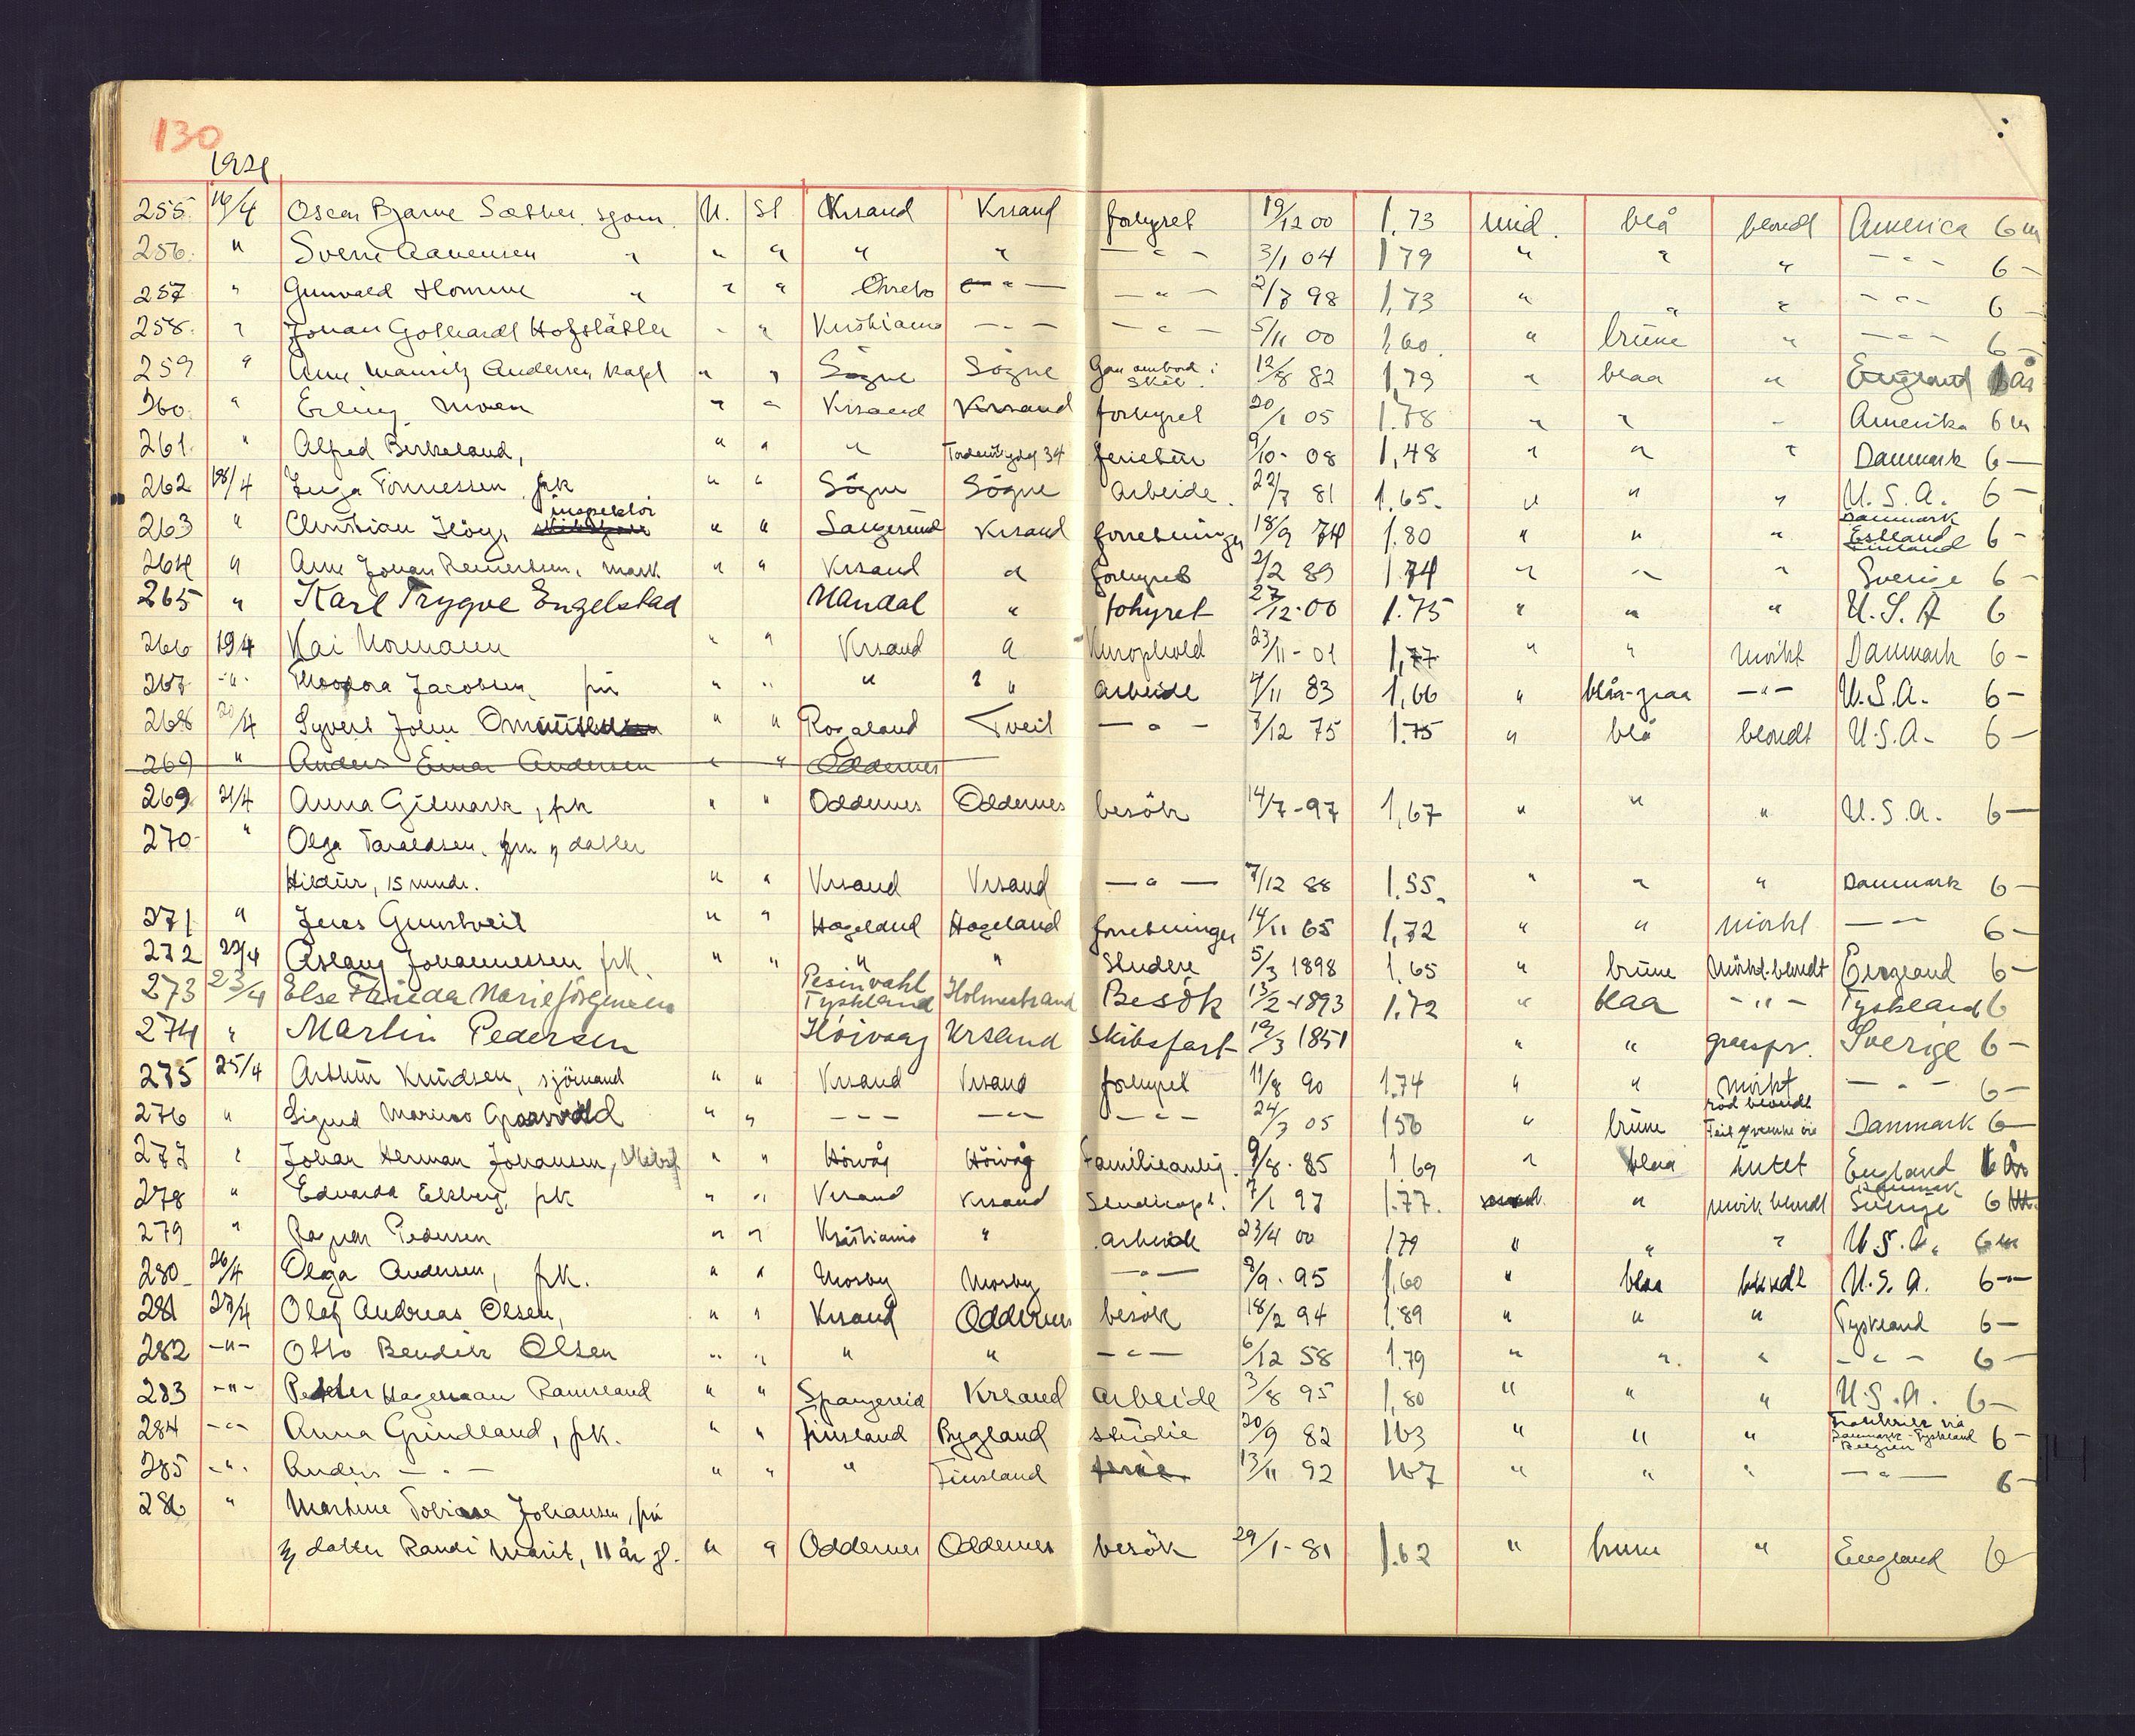 130
255. 16/4 Oscar Bjarne Sæther sjøm. N. St Krsand Krsand forhyret 19/12 00 1.73 mid. blå blondt America 6 m
256. " Sverre Aanensen " " " " " — " — 3/1 04 179 " " " — " — 6 —
257 " Gunvald Homme " " " — " — — " — 2/7 98 1,73 " " " — " — 6
258. " Johan Gothardt Hofslätter " " Kristiania — " — — " — 5/11 00 1,60. " brune " — " — 6 —
259 " Arne Mauritz Andersen kapt " " Sögne Sögne Gaa ombord i Skib. 12/8 82 1,79 " blaa " England år
260. " Erling Moen " " Krsand Krsand forhyret 20/1 05 1.78 " " " Amerika 6 m
261. " Alfred Birkeland, " " " 34 ferietur 9/10 - 08 1,48 " " " Danmark 6 —
262 18/4 Inga Tönnessen frk " " Sögne Sögne Arbeide. 22/7 81 1.65. " " " U.S.A. 6 —
263 " Christian Höeg, inspektör " " Langesund Krsand forretninger 18/9 74 1.80 " " " Danmark Estland Finland 6 —
264 " Arne Johan Reinertsen, mask. " " Krsand " forhyret 2/2 89 174 " " " Sverige 6 —
265 " Karl Trygve Engelstad Mandal " fohyret 27/12-00 1.75 " " " U.S.A 6
266 19/4 Kai Normann " " Krsand " Kurophold 23/11 - 01 1,77 " " mörkt Danmark 6 —
267 - " - Theodora Jacobsen, fru " " " " arbeide 4/11 83 1,66 " blåa-graa — " — U.S.A. 6 —
268 20/4 Syvert John Omundsen " " Rogaland Tveit — " — 7/12 75 1.75 " blå blondt U.S.A. 6 —
269 " Anders Einar Andersen " " Oddernes
269 21/4 Anna Gilmark, frk " " Oddernes Oddernes besök 14/7 - 97 1,67 " " " U.S.A. 6 —
270 " Olga Taraldsen, fru m datter
Hildur, 15 mndr. " " Krsand Krsand — " — 7/12 88 1.55. " " " Danmark 6 —
271 " Jens Gunstveit " " Hægeland Hægeland forretninger 14/11 65 1,72 " " mörkt — " — 6 —
272 22/4 Aslaug Johannessen frk. " " " " Studere 5/3 1898 1.65 " brune Mörkt-blondt England 6 —
273 23/4 Else Frieda Marie Tyskland Holmestrand Besök 13/2 - 1893 1.72 " blaa — " — Tyskland 6
274 " Martin Pedersen Höivaag Krsand Skibsfart 19/3 1851 " " graaspr. Sverige 6 —
275 25/4 Arthur Knudsen, sjömand " " Krsand Krsand forhyret 11/8 90 1.74 " " mörkt — " — 6 —
276 " Sigurd Marino " " — " — — " — — " — 24/3 05 156 " brune rød blondt Danmark 6 —
277 " Johan Herman Johansen, " " Höivåg Höivåg Familieanlig. 9/8 - 85 1.69 " blaa intet England
278 " Edvarda Ekberg, frk " " Krsand Krsand Studieoph. 7/1 97 1.77. " mörk blondt Danmark Sverige 6
279 " Ragnar Pedersen " " Kristiania " arbeide 23/4 00 179 " " " U.S.A. 6 m
280 26/4 Olga Andersen, frk. " " Mosby Mosby — " — 8/9 - 95 1,60 " blaa blondt U.S.A. 6 —
281 27/4 Olaf Andreas Olsen, " " Krsand Oddernes besök 18/2 94 1.89 " " " Tyskland 6 —
282 — " — Otto Bendik Olsen " " " " — " — 6/12 58 1.79 " " " — " — 6 —
283 — " — Petter Hageman Ramsland " " Spangereid Krsand arbeide 3/8 95 1,80 " " " U.S.A. 6 —
284 — " — Anna Grindland, frk. " " Finsland Bygland studie 20/9 82 163 " " " Frankrike via Danmark - Tyskland Belgien 6 —
285 — " — Anders — " — " " " Finsland 13/11 92 167 " " " — " — 6 —
286 " Martine Tobiase Johansen, fru
m datter Randi Marit, 11 år gl. " " Oddernes Oddernes besök 29/1 - 81 1.62 " brune " England 6